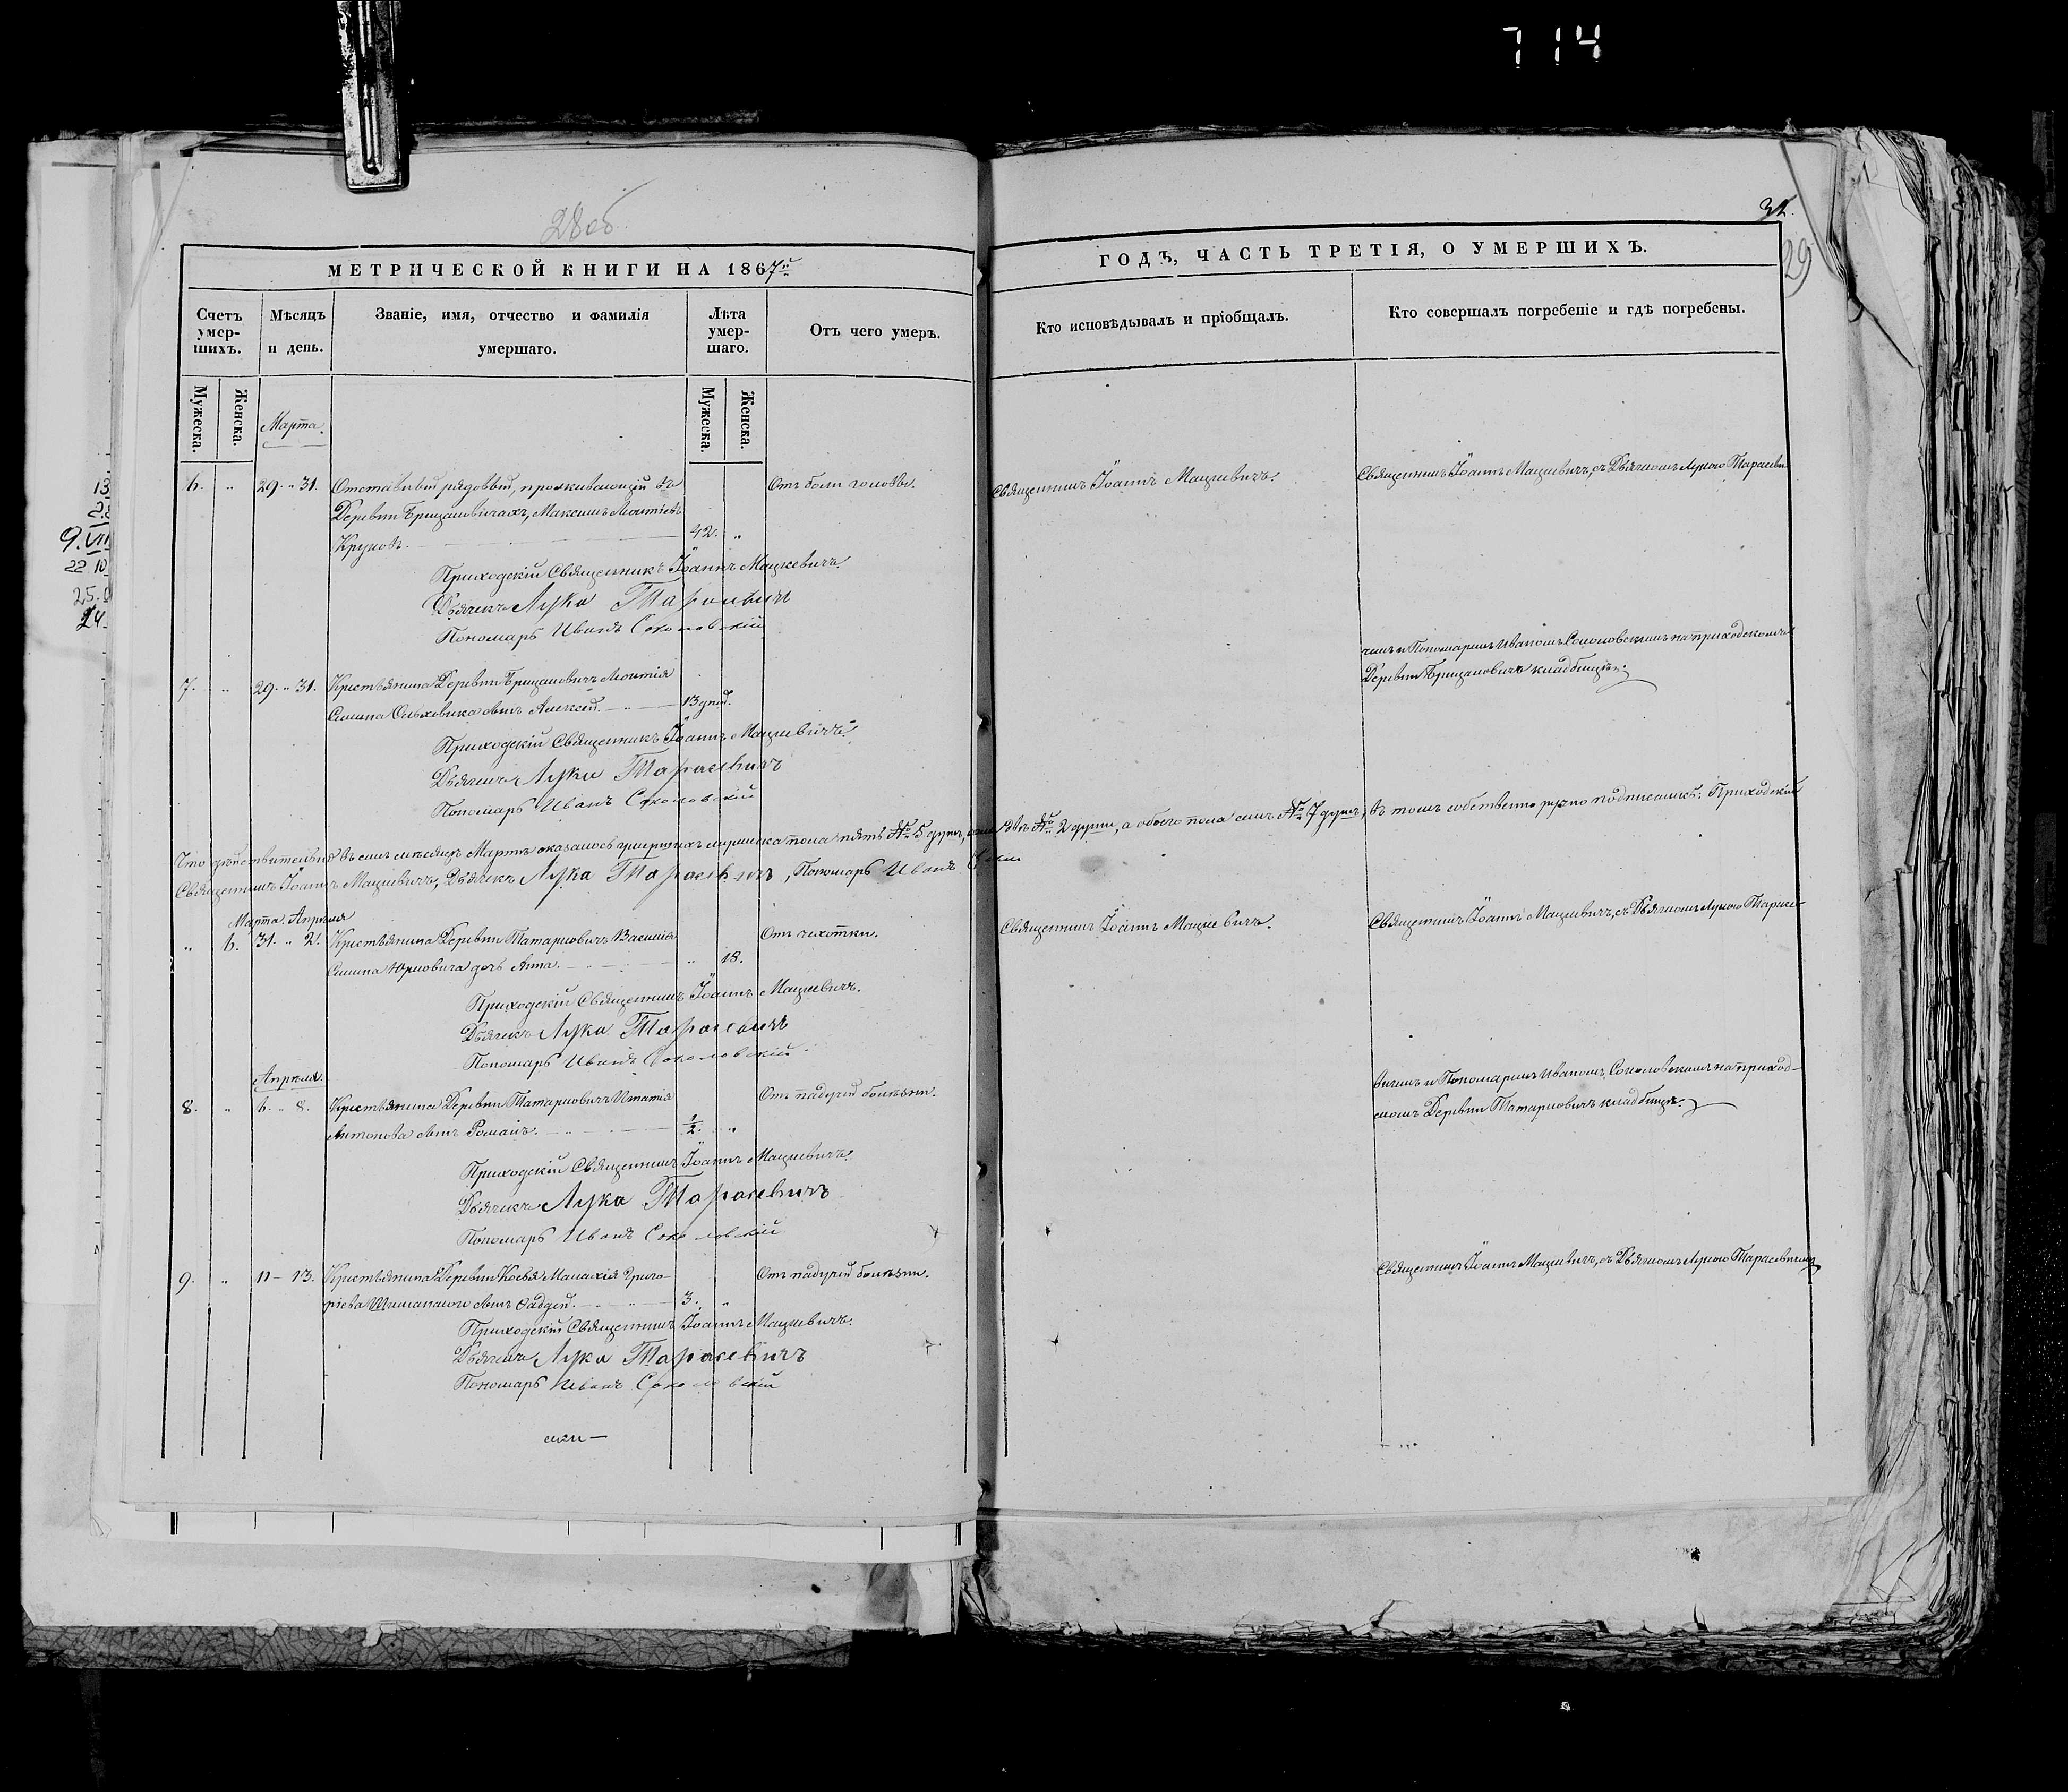 714
28об
МЕТРИЧЕСКОЙ КНИГИ НА 1867й
Счетъ умер-шихъ.
Мѣсяцъ и день.
Званіе, имя, отчество и фамилія умершаго.
Лѣта умер-шаго.
Отъ чего умеръ.
Мужеска.
Женска.
Марта.
Мужеска.
Женска.
6. „ 29. „ 31. Отставный рядовый, проживающій въ
Отъ боли головы.
Деревни Брицаловичахъ, Максимъ Леонтіевъ
Круковъ. 42. „
Приходскій Священникъ Іоаннъ Мацкевичъ.
Дьячекъ Лука Тарасевичъ
Пономарь Иванъ Соколовскій
7. „ 29. „ 31. Крестьянина Деревни Брицаловичъ Леонтія
Семена Ольховика сынъ Алексей. 13 дней.
Приходскій Священникъ Іоаннъ Мацкевичъ.
Дьячекъ Лука Тарасевичъ
Пономарь Иванъ Соколовскій
Что дѣйствительно въ семъ месяцѣ Мартѣ оказалось умершихъ мужеска пола пять № 5 душъ, двѣ № 2 души, а обоего пола семь № 7 душъ, въ томъ собственно ручно подписаемся: Приходскій
Священникъ Іоаннъ Мацкевичъ, Дьячекъ Лука Тарасевичъ, Пономарь Иванъ
Марта. Апрѣля
„ 6. 31. „ 2. Крестьянина Деревни Татарковичъ Василія
Отъ чахотки.
Семена Юрковича дочь Анна. „ 18.
Приходскій Священникъ Іоаннъ Мацкевичъ.
Дьячекъ Лука Тарасевичъ
Пономарь Иванъ Соколовскій
Апрѣля.
8. „ 6. „ 8. Крестьянина Деревни Татарковичъ Игнатія
Отъ падучей болѣзни.
Антонова сынъ Романъ. 1/2. „
Приходскій Священникъ Іоаннъ Мацкевичъ.
Дьячекъ Лука Тарасевичъ
Пономарь Иванъ Соколовскій
9. „ 11 – 13. Крестьянина Деревни Малахія Григо-
Отъ падучей болѣзни.
ріева сынъ Фадей. 3. „
Приходскій Священникъ Іоаннъ Мацкевичъ.
Дьячекъ Лука Тарасевичъ
Пономарь Иванъ Соколовскій
29
ГОДЪ, ЧАСТЬ ТРЕТІЯ, О УМЕРШИХЪ.
Кто исповѣдывалъ и пріобщалъ.
Кто совершалъ погребеніе и гдѣ погребены.
Священникъ Іоаннъ Мацкевичъ.
Священникъ Іоаннъ Мацкевичъ, съ Дьячкомъ Лукою Тарасеви-
чемъ и Пономаремъ Иваномъ Соколовскимъ на приходскомъ
Деревни Брицаловичъ кладбищѣ.
Священникъ Іоаннъ Мацкевичъ.
Священникъ Іоаннъ Мацкевичъ, съ Дьячкомъ Лукою Тарасе-
вичемъ и Пономаремъ Иваномъ Соколовскимъ на приход-
скомъ Деревни Татарковичъ кладбищѣ.
Священникъ Іоаннъ Мацкевичъ, съ Дьячкомъ Лукою Тарасевичемъ